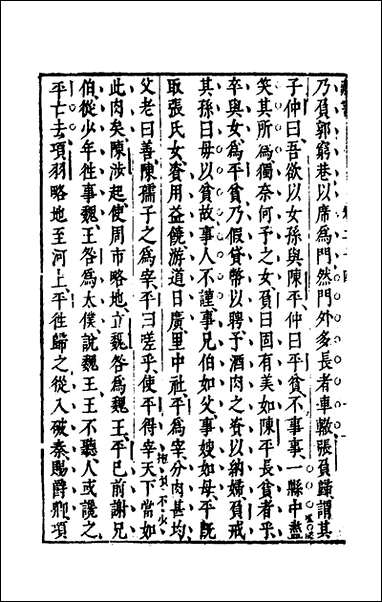 乃負郭窮巷以席為門然門外多長者車轍張負歸謂其
子仲曰吾欲以女孫與陳平仲曰平貧不事事一縣中盡
笑其所為獨奈何予之女負曰固有美如陳平長貧者乎
卒與女為平貧乃假貸幣以聘予酒肉之資以納婦負戒
其孫曰毋以貧故事人不謹事兄伯如父事嫂如毋平既
取張氏女資用益饒游道日廣里中社平為宰分肉甚均
父老曰善陳孺子之為宰平曰嗟乎使平得宰天下當如
此肉矣陳涉起使周市略地立魏咎為魏王平已前謝兄
伯從少年徃事魏王咎為太僕說魏王王不聽人或讒之
平亡去項羽略地至河上平徃歸之從入破秦賜爵卿項